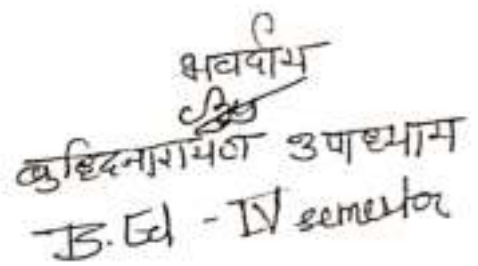 भवदीय
बुद्धिनारायण उपाध्याय
B.Ed - IV semester